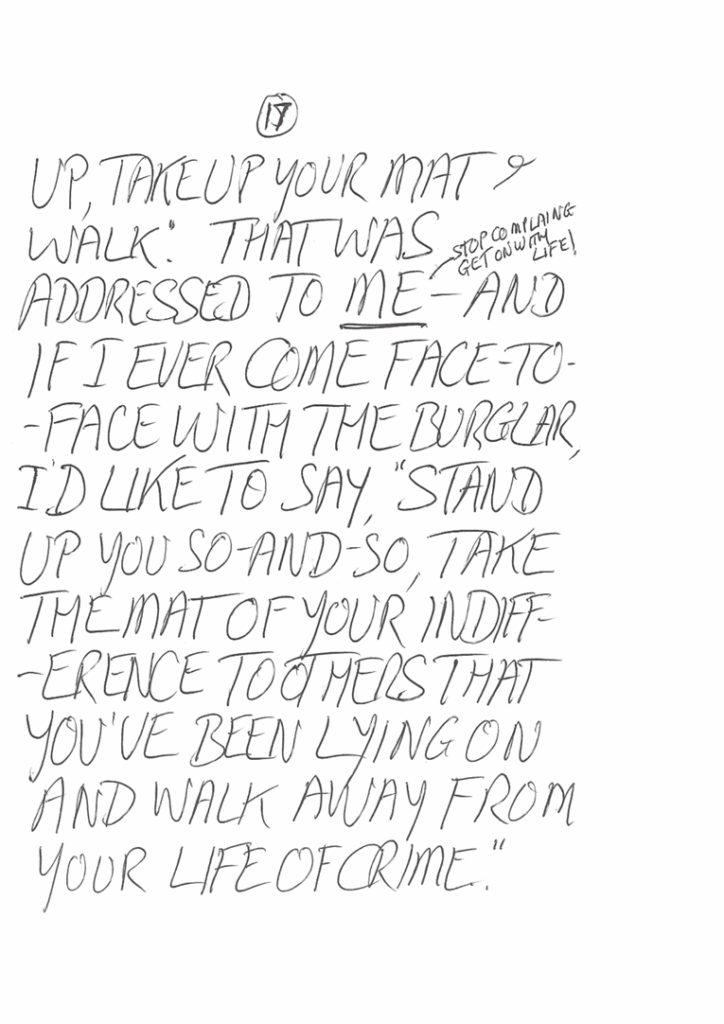 17
UP, TAKE UP YOUR MAT &
WALK". THAT WAS
STOP COMPLAING
GET ON WITH
LIFE!
ADDRESSED TO ME – AND
IF I EVER COME FACE-TO-
-FACE WITH THE BURGLAR,
I'D LIKE TO SAY, "STAND
UP YOU SO-AND-SO, TAKE
THE MAT OF YOUR INDIFF-
-ERENCE TO OTHERS THAT
YOU'VE BEEN LYING ON
AND WALK AWAY FROM
YOUR LIFE OF CRIME."